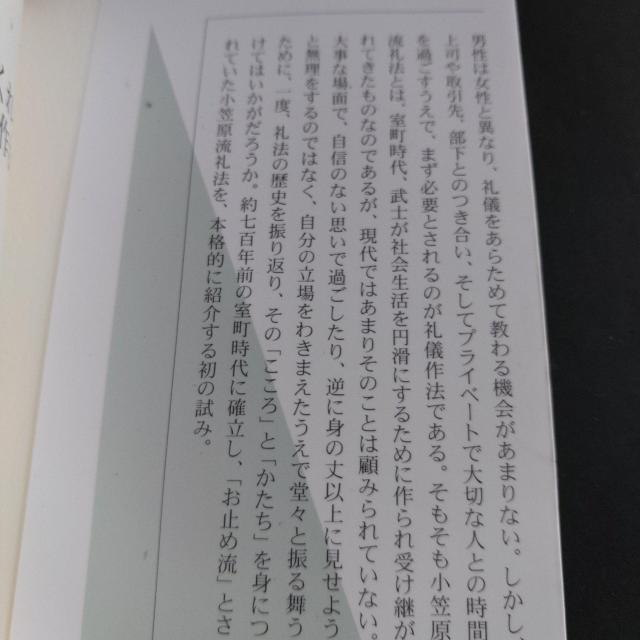 男性は女性と異なり、礼儀をあらためて教わる機会があまりない。しかし、
上司や取引先、部下とのつき合い、そしてプライベートで大切な人との時間
を過ごすうえで、まず必要とされるのが礼儀作法である。そもそも小笠原
流礼法とは、室町時代、武士が社会生活を円滑にするために作られ受け継が
れてきたものなのであるが、現代ではあまりそのことは顧みられていない。
大事な場面で、自信のない思いで過ごしたり、逆に身の丈以上に見せよう
と無理をするのではなく、自分の立場をわきまえたうえで堂々と振る舞う
ために、一度、礼法の歴史を振り返り、その「こころ」と「かたち」を身につ
けてはいかがだろうか。約七百年前の室町時代に確立し、「お止め流」とさ
れていた小笠原流礼法を、本格的に紹介する初の試み。